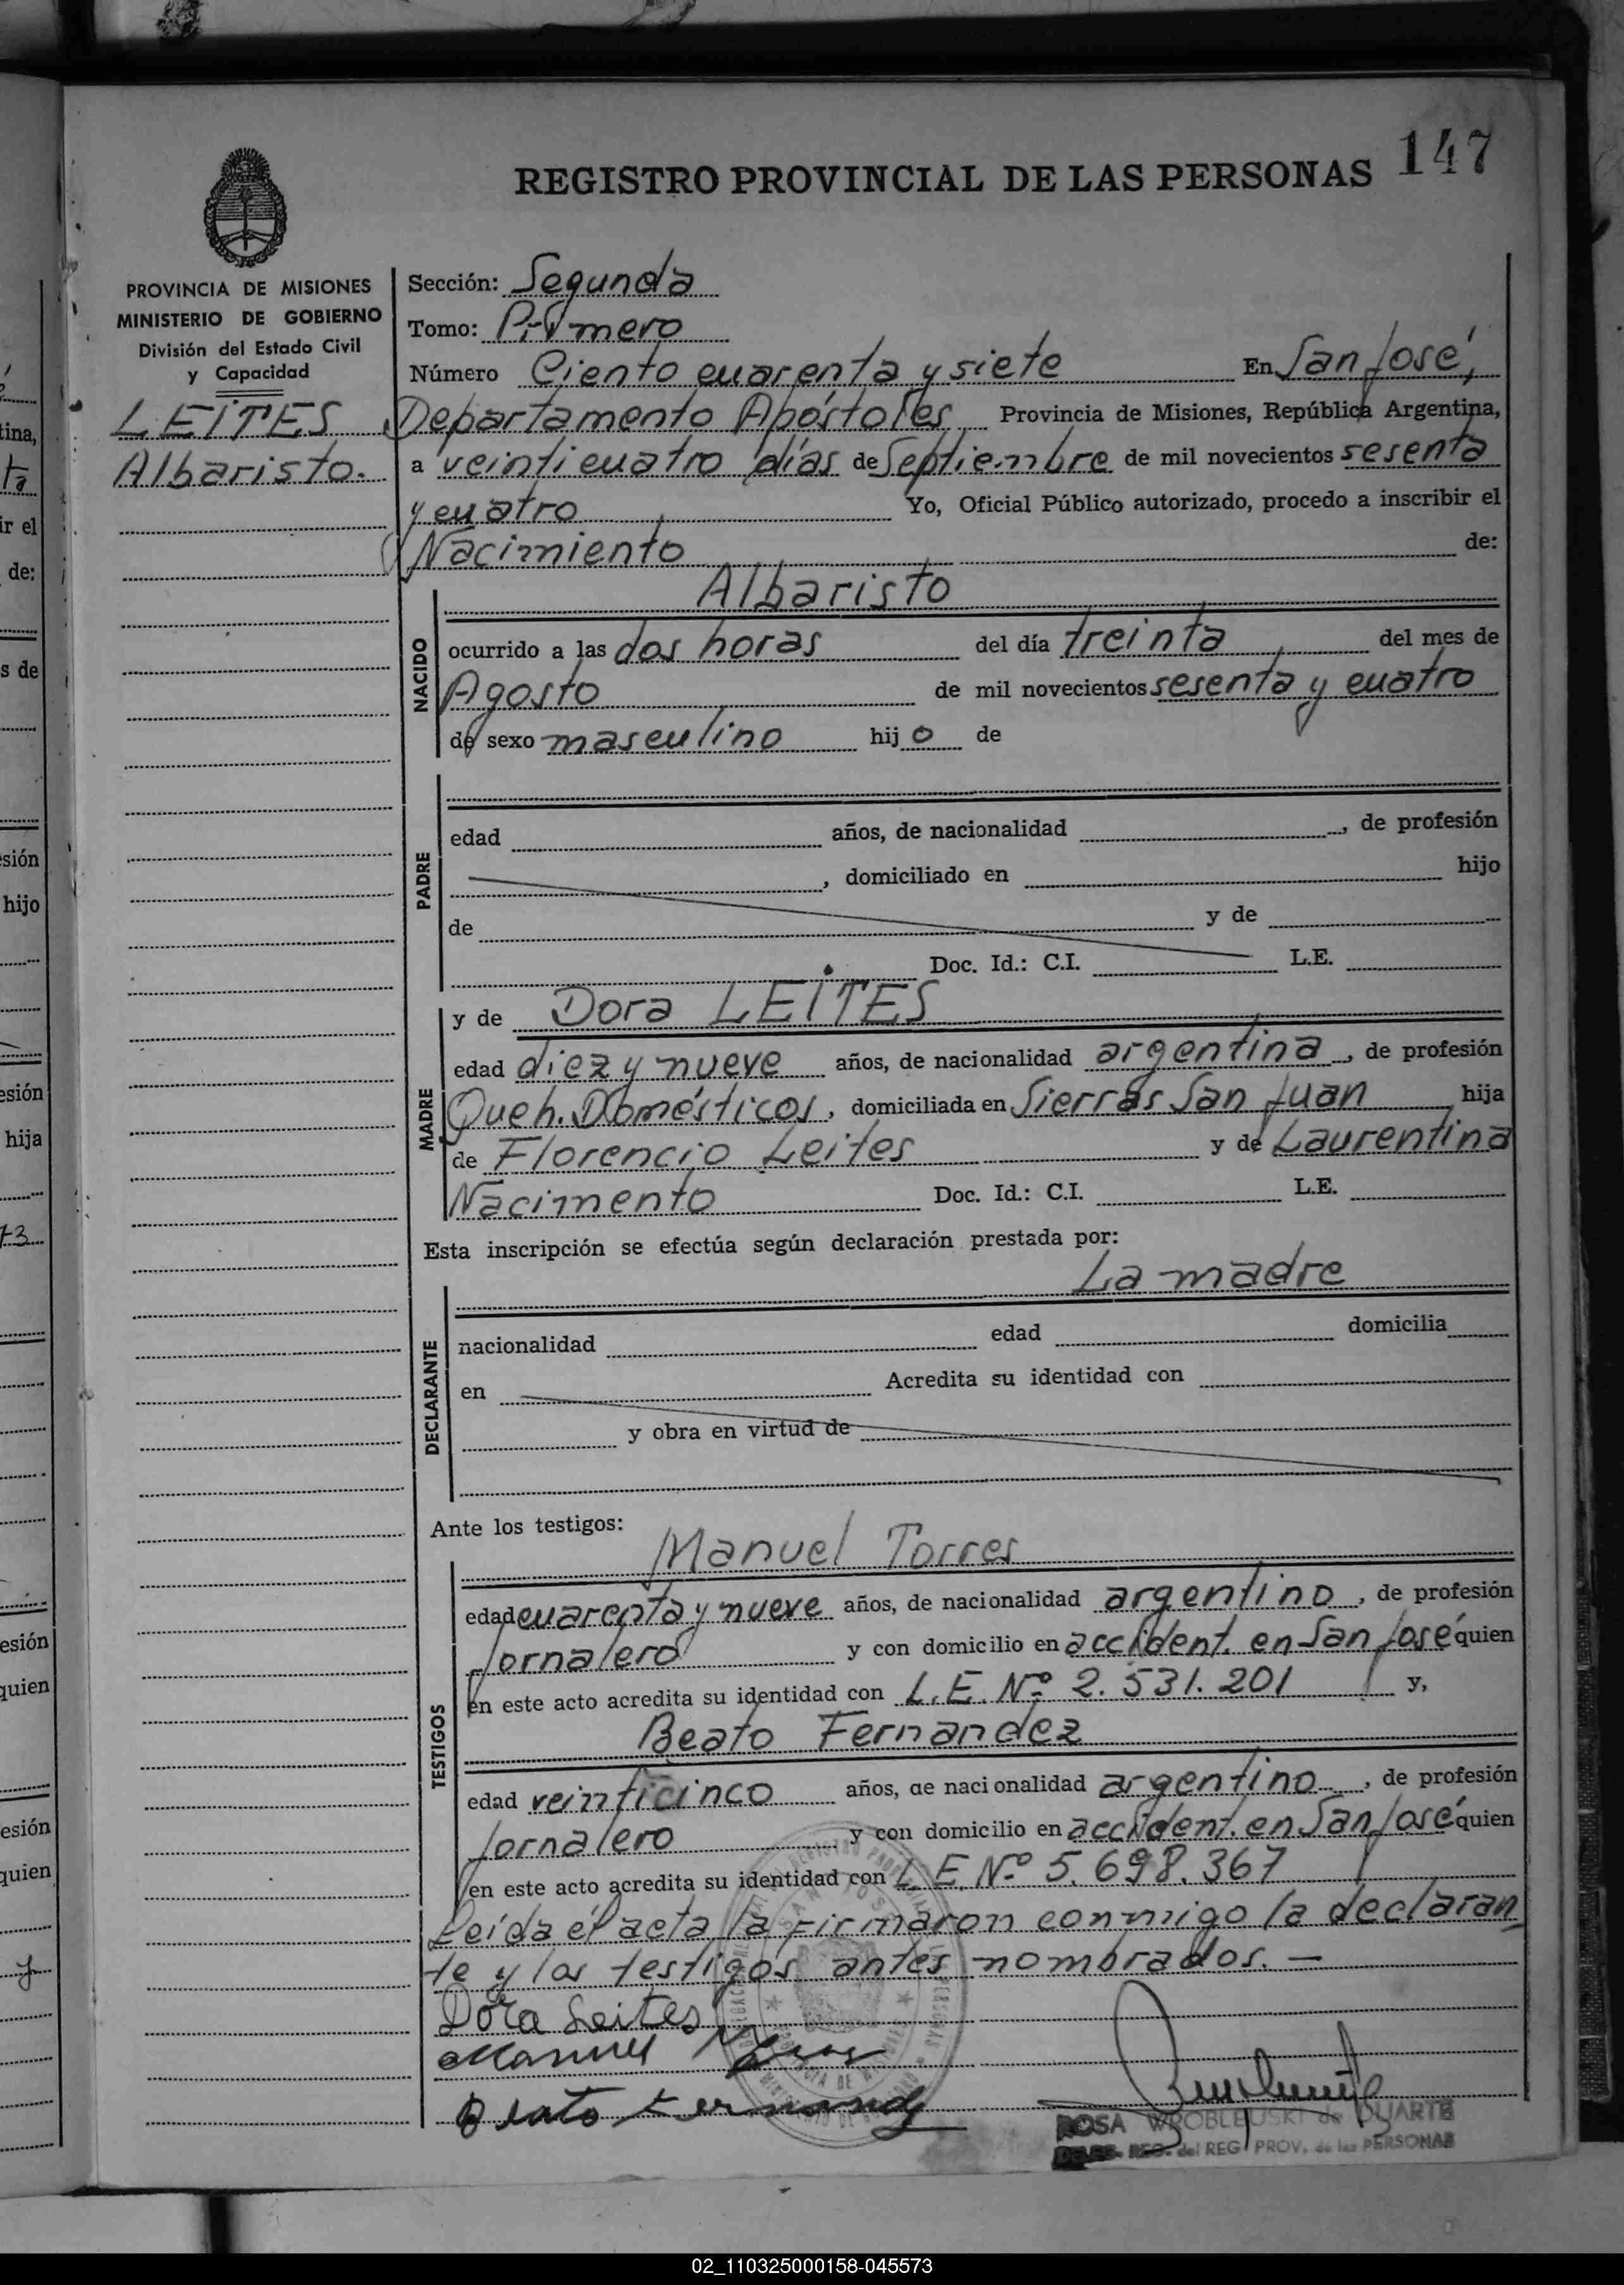 147
REGISTRO PROVINCIAL DE LAS PERSONAS
PROVINCIA DE MISIONES
MINISTERIO DE GOBIERNO
División del Estado Civil
y Capacidad
LEITES
Albaristo.
Sección: Segunda
Tomo: Primero
Número Ciento cuarenta y siete En San José,
Departamento Apóstoles Provincia de Misiones, República Argentina,
a veinticuatro días de Septiembre de mil novecientos sesenta
y cuatro Yo, Oficial Público autorizado, procedo a inscribir el
Nacimiento de:
NACIDO
Albaristo
ocurrido a las dos horas del día treinta del mes de
Agosto de mil novecientos sesenta y cuatro
de sexo masculino hijo de
PADRE
edad años, de nacionalidad , de profesión
, domiciliado en hijo
de y de
Doc. Id.: C.I. L.E.
MADRE
y de Dora LEITES
edad diez y nueve años, de nacionalidad argentina, de profesión
Queh. Domésticos, domiciliada en Sierras San Juan hija
de Florencio Leites y de Laurentina
Nacimento Doc. Id.: C.I. L.E.
Esta inscripción se efectúa según declaración prestada por:
La madre
DECLARANTE
nacionalidad edad domicilia
en Acredita su identidad con
y obra en virtud de
Ante los testigos:
Manuel Torres
TESTIGOS
edad cuarenta y nueve años, de nacionalidad argentino, de profesión
Jornalero y con domicilio en accident. en San José quien
en este acto acredita su identidad con L.E. Nº 2.531.201 y,
Beato Fernandez
edad veinticinco años, de nacionalidad argentino, de profesión
Jornalero y con domicilio en accident. en San José quien
en este acto acredita su identidad con L.E. Nº 5.698.367
Leída el acta la firmaron conmigo la declaran
te y los testigos antes nombrados. —
Dora Leites
Manuel
Beato Fernand
ROSA WROBLEUSKI de DUARTE
del REG PROV. de las PERSONAS
02_110325000158-045573